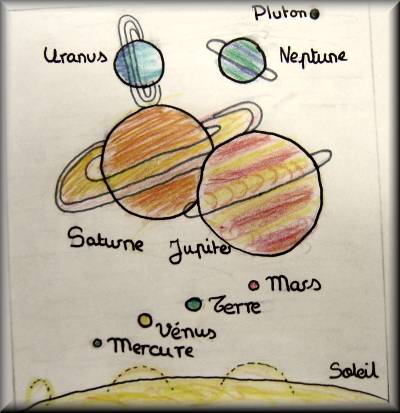 Pluton
Uranus
Neptune
Saturne
Jupiter
Mars
Terre
Vénus
Mercure
Soleil